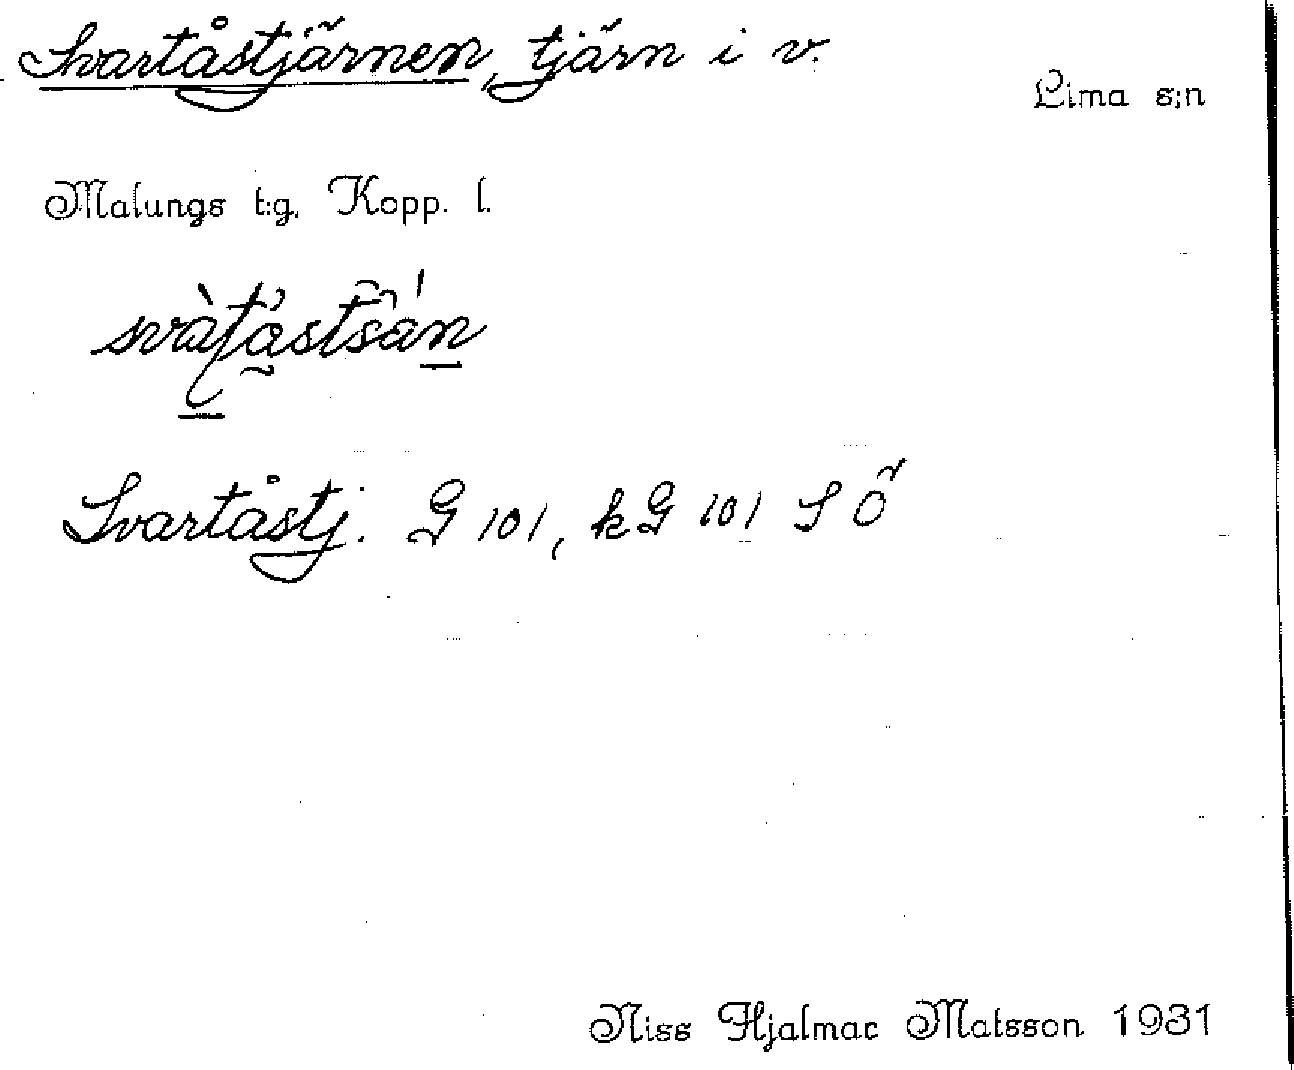 Svartåstjärnen, tjärn i v.
Lima s:n
Malungs t:g. Kopp. l.
Svartåstj. G 101, kG 101 S Ö
Niss Hjalmar Matsson 1931